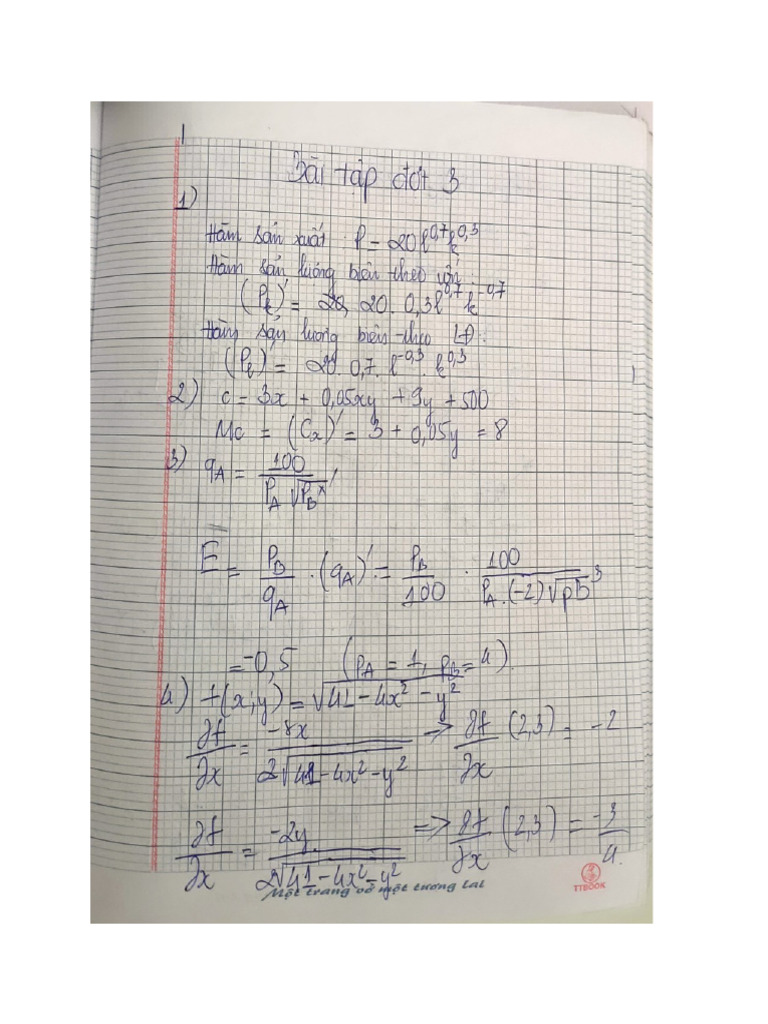 Bài tập đợt 3
1)
Hàm sản xuất : P = 20l^0,7 k^0,3
Hàm sản lượng biên theo vốn :
(P_k)' = 20. 0,3l^0,7 k^-0,7
Hàm sản lượng biên theo LĐ :
(P_l)' = 20. 0,7. l^-0,3 . k^0,3
2) C = 3x + 0,05xy + 9y + 500
Mc = (C_x)' = 3 + 0,05y = 8
3) q_A = 100 / (P_A √P_B)
E = P_B/q_A . (q_A)' = P_B/100 . 100 / (P_A . (-2)√pb^3)
= -0,5 (P_A = 1, P_B = 4).
4) f(x;y) = √(41 - 4x² - y²)
∂f/∂x = -8x / (2√(41 - 4x² - y²)) => ∂f/∂x (2,3) = -2
∂f/∂x = -2y / (2√(41 - 4x² - y²)) => ∂f/∂x (2,3) = -3/4.
Một trang vở một tương lai
TTBOOK